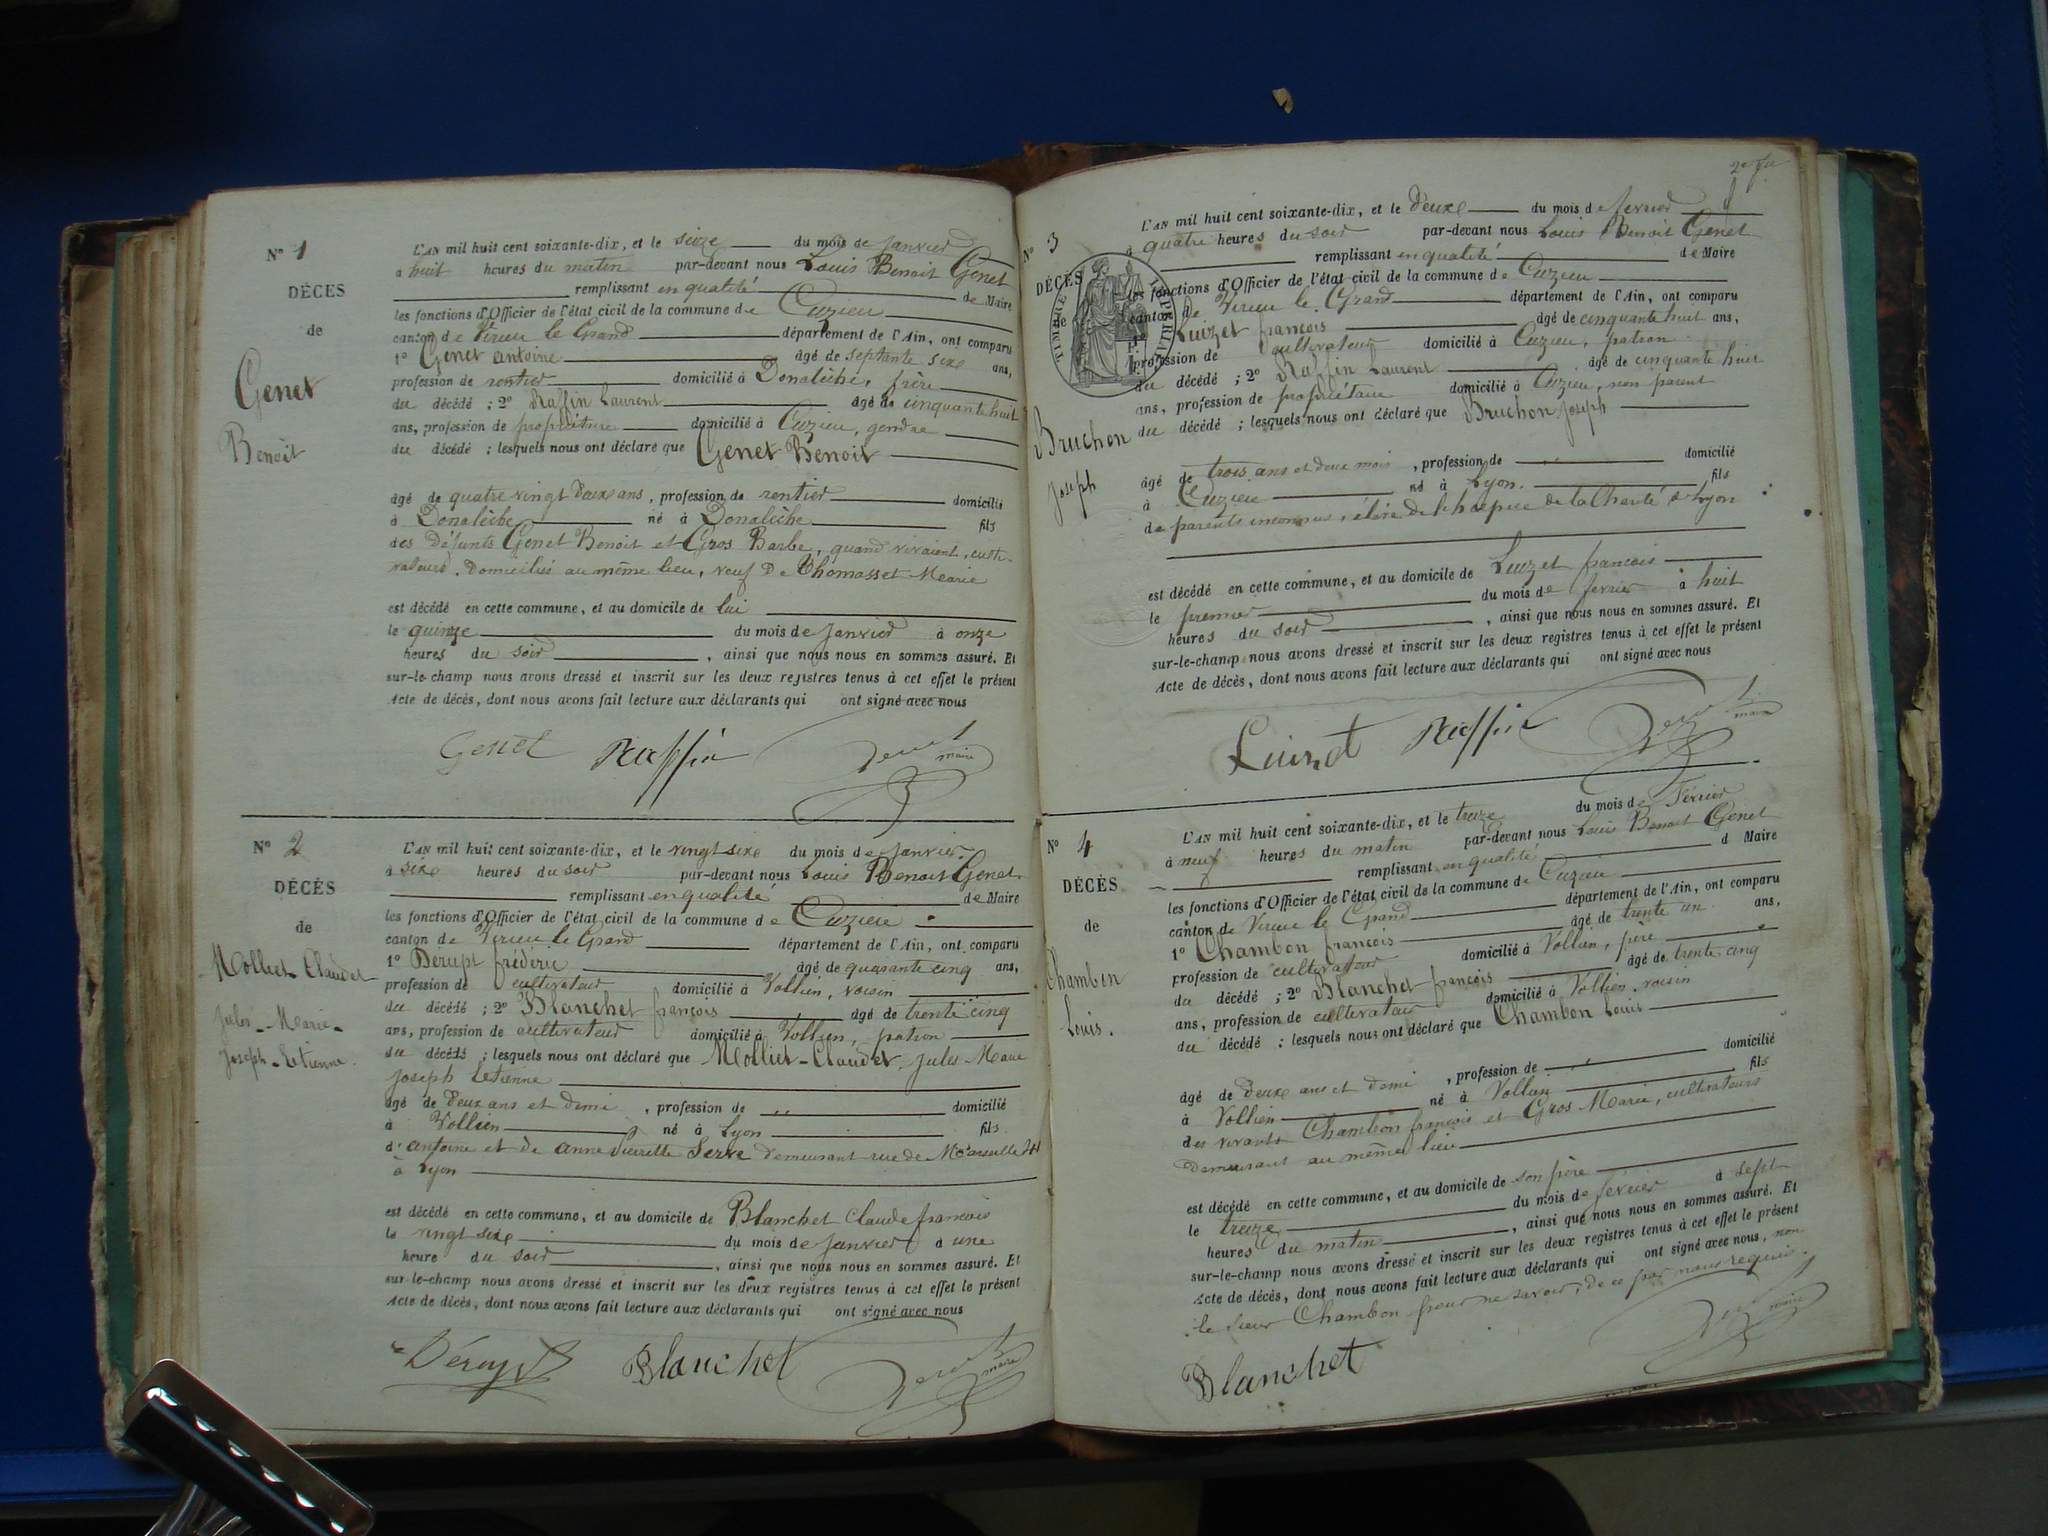 N° 1
DÉCES
de
Genet
Benoit
L'AN mil huit cent soixante-dix, et le seize du mois de janvier
à huit heures du matin par-devant nous Louis Benoit Genet
remplissant en qualité de Maire
les fonctions d'Officier de l'état civil de la commune de Cuzieu
canton de Virieu le Grand département de l'Ain, ont comparu
1° Genet antoine âgé de septante six ans,
profession de rentier domicilié à Donalèche, frère
du décédé ; 2° Raffin Laurent âgé de cinquante huit
ans, profession de propriétaire domicilié à Cuzieu, gendre
du décédé ; lesquels nous ont déclaré que Genet Benoit
âgé de quatre vingt deux ans, profession de rentier domicilié
à Donalèche né à Donalèche fils
des défunts Genet Benoit et Gros Barbe, quand vivaient, culti-
vateurs, domiciliés au même lieu, veuf de Thomasset Marie
est décédé en cette commune, et au domicile de lui
le quinze du mois de janvier à onze
heures du soir, ainsi que nous nous en sommes assuré. Et
sur-le-champ nous avons dressé et inscrit sur les deux registres tenus à cet effet le présent
Acte de décès, dont nous avons fait lecture aux déclarants qui ont signé avec nous
Genet Raffin Genet maire
N° 2
DÉCÈS
de
Molliet-Claudet
Jules-Marie-
Joseph-Etienne.
L'AN mil huit cent soixante-dix, et le vingt six du mois de janvier
à six heures du soir par-devant nous Louis Benoit Genet
remplissant en qualité de Maire
les fonctions d'Officier de l'état civil de la commune de Cuzieu
canton de Virieu le Grand département de l'Ain, ont comparu
1° Dérupt frédéric âgé de quarante cinq ans,
profession de cultivateur domicilié à Vollien, voisin
du décédé ; 2° Blanchet françois âgé de trente cinq
ans, profession de cultivateur domicilié à Vollien, patron
du décédé ; lesquels nous ont déclaré que Molliet-Claudet, Jules Marie
Joseph Etienne
âgé de deux ans et demi, profession de ,, domicilié
à Vollien né à Lyon fils
d'antoine et de anne Pierrette Serve demeurant rue de Marseille
à Lyon
est décédé en cette commune, et au domicile de Blanchet Claude françois
le vingt six du mois de janvier à une
heure du soir, ainsi que nous nous en sommes assuré. Et
sur-le-champ nous avons dressé et inscrit sur les deux registres tenus à cet effet le présent
Acte de décès, dont nous avons fait lecture aux déclarants qui ont signé avec nous
Dérupt Blanchet Genet maire
N° 3
DÉCÈS
de
TIMBRE IMPERIAL
Bruchon
Joseph
L'AN mil huit cent soixante-dix, et le deux du mois de février
à quatre heures du soir par-devant nous Louis Benoit Genet
remplissant en qualité de Maire
les fonctions d'Officier de l'état civil de la commune de Cuzieu
canton de Virieu le Grand département de l'Ain, ont comparu
1° Luizet françois âgé de cinquante huit ans,
profession de cultivateur domicilié à Cuzieu, patron
du décédé ; 2° Raffin Laurent âgé de cinquante huit
ans, profession de propriétaire domicilié à Cuzieu, non parent
du décédé ; lesquels nous ont déclaré que Bruchon Joseph
âgé de trois ans et deux mois, profession de ,, domicilié
à Cuzieu né à Lyon fils
de parents inconnus, élève de l'hospice de la Charité de Lyon
est décédé en cette commune, et au domicile de Luizet françois
le premier du mois de février à huit
heures du soir, ainsi que nous nous en sommes assuré. Et
sur-le-champ nous avons dressé et inscrit sur les deux registres tenus à cet effet le présent
Acte de décès, dont nous avons fait lecture aux déclarants qui ont signé avec nous
Luizet Raffin Genet maire
N° 4
DÉCÈS
de
Chambon
Louis.
L'AN mil huit cent soixante-dix, et le treize du mois de Février
à neuf heures du matin par-devant nous Louis Benoit Genet
remplissant en qualité d Maire
les fonctions d'Officier de l'état civil de la commune de Cuzieu
canton de Virieu le Grand département de l'Ain, ont comparu
1° Chambon françois âgé de trente un ans,
profession de cultivateur domicilié à Vollien, père
du décédé ; 2° Blanchet françois âgé de trente cinq
ans, profession de cultivateur domicilié à Vollien, voisin
du décédé ; lesquels nous ont déclaré que Chambon Louis
âgé de deux ans et demi, profession de ,, domicilié
à Vollien né à Vollien fils
des vivants Chambon françois et Gros Marie, cultivateurs
demeurant au même lieu
est décédé en cette commune, et au domicile de son père
le treize du mois de février à sept
heures du matin, ainsi que nous nous en sommes assuré. Et
sur-le-champ nous avons dressé et inscrit sur les deux registres tenus à cet effet le présent
Acte de décès, dont nous avons fait lecture aux déclarants qui ont signé avec nous, non
le sieur Chambon pour ne savoir, de ce par nous requis.
Blanchet Genet maire